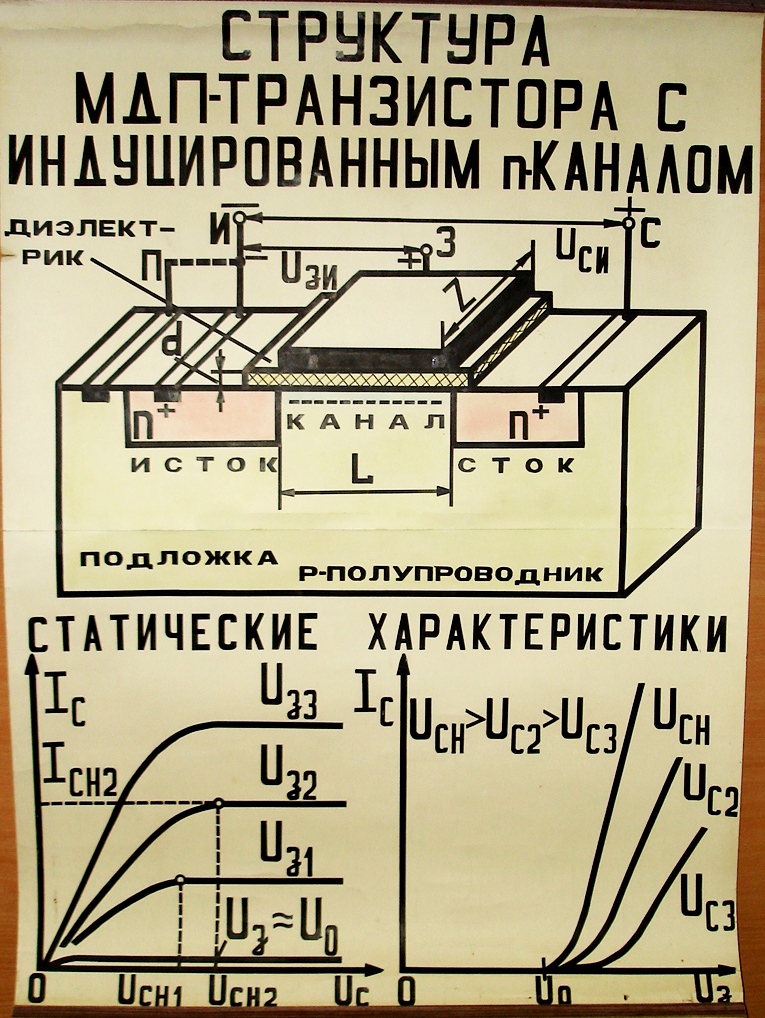 СТРУКТУРА
МДП-ТРАНЗИСТОРА С
ИНДУЦИРОВАННЫМ n-КАНАЛОМ
ДИЭЛЕКТ-
РИК
И
З
С
+
–
П
–
+
UЗИ
UСИ
Z
d
n+
КАНАЛ
n+
ИСТОК
L
СТОК
ПОДЛОЖКА
Р-ПОЛУПРОВОДНИК
СТАТИЧЕСКИЕ ХАРАКТЕРИСТИКИ
IС
UЗ3
IСН2
UЗ2
UЗ1
UЗ≈U0
0
UСН1
UСН2
UС
IС
UСН>UС2>UС3
UСН
UС2
UС3
0
U0
UЗ